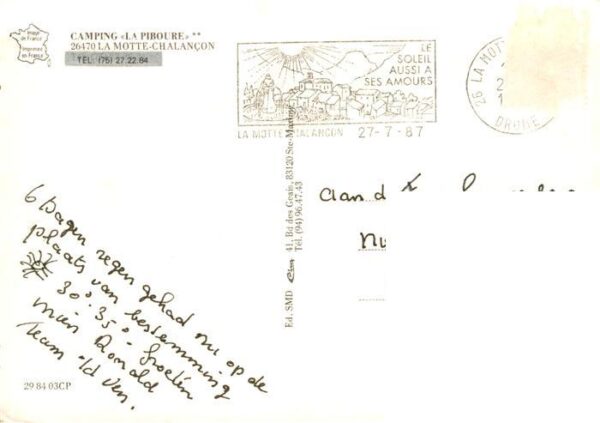 Image
de France
Imprimée
en France
CAMPING «LA PIBOURE» **
26470 LA MOTTE-CHALANÇON
TÉL. (75) 27.22.84
LE
SOLEIL
AUSSI A
SES AMOURS
LA MOTTE CHALANCON 27-7-87
26 LA MOTT
DROME
Ed. SMD 41, Bd des Geais, 83120 Ste-Maxime
Tél. (94) 96.47.43
6 Dagen regen gehad nu op de
plaats van bestemming
30°.35° groeten
Ronald
team
29 84 03CP